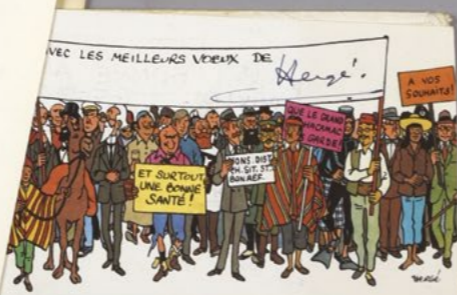 AVEC LES MEILLEURS VOEUX DE
Hergé.
A VOS
SOUHAITS!
QUE LE GRAND
GARDE!
ET SURTOUT,
UNE BONNE
SANTÉ!
HERGÉ